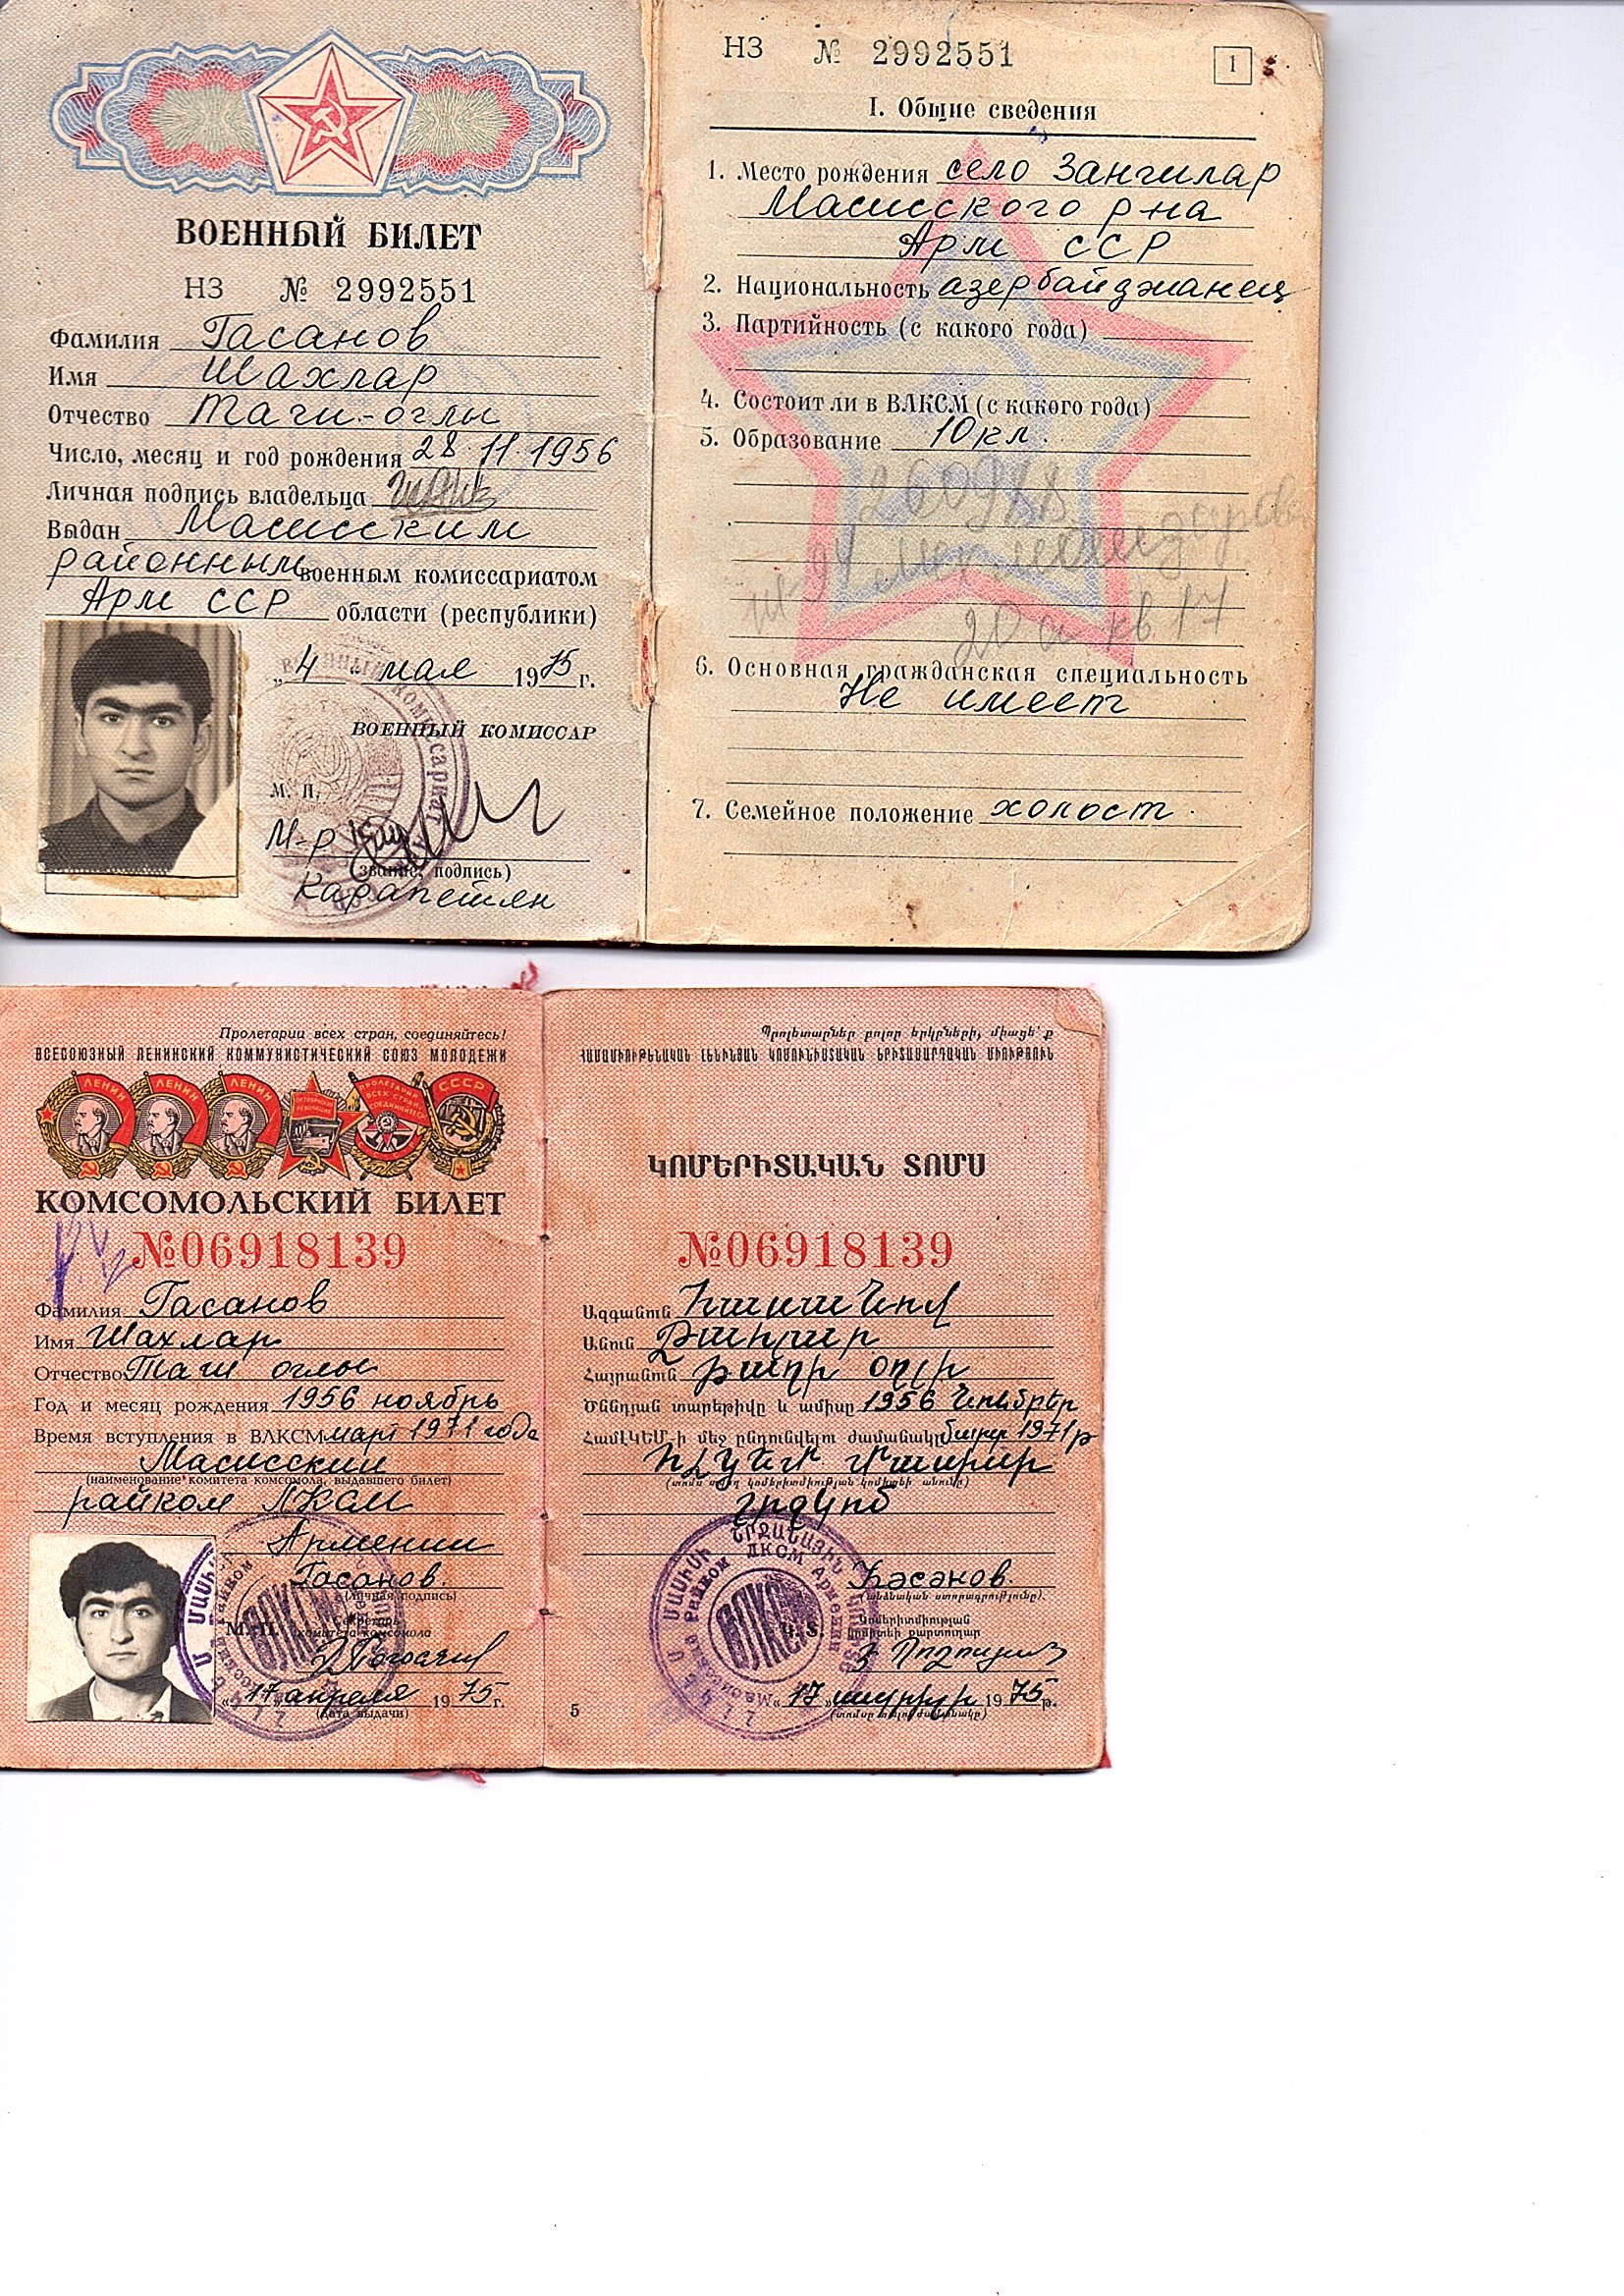 ВОЕННЫЙ БИЛЕТ
НЗ № 2992551
Фамилия Гасанов
Имя Шахлар
Отчество Таги-оглы
Число, месяц и год рождения 28.11.1956
Личная подпись владельца
Выдан Масисским
районным военным комиссариатом
Арм ССР области (республики)
„4" мая 1975 г.
ВОЕННЫЙ КОМИССАР
М. П.
М-р
(звание, подпись)
Карапетян
НЗ № 2992551
1
I. Общие сведения
1. Место рождения село Зангилар
Масисского р-на
Арм ССР
2. Национальность азербайджанец
3. Партийность (с какого года)
4. Состоит ли в ВЛКСМ (с какого года)
5. Образование 10 кл.
20 а кв 17
6. Основная гражданская специальность
Не имеет
7. Семейное положение холост.
Пролетарии всех стран, соединяйтесь!
ВСЕСОЮЗНЫЙ ЛЕНИНСКИЙ КОММУНИСТИЧЕСКИЙ СОЮЗ МОЛОДЕЖИ
ЛЕНИН ЛЕНИН ЛЕНИН ОКТЯБРЬСКАЯ РЕВОЛЮЦИЯ ПРОЛЕТАРИИ ВСЕХ СТРАН СОЕДИНЯЙТЕСЬ СССР
КОМСОМОЛЬСКИЙ БИЛЕТ
№06918139
Фамилия Гасанов
Имя Шахлар
Отчество Таги оглы
Год и месяц рождения 1956 ноябрь
Время вступления в ВЛКСМ март 1971 года
Масисский
(наименование комитета комсомола, выдавшего билет)
райком ЛКСМ
Армении
Гасанов.
(личная подпись)
М. П. Секретарь
комитета комсомола
„17" апреля 1975 г.
(дата выдачи)
Պրոլետարներ բոլոր երկրների, միացե՛ք
ՀԱՄԱՄԻՈՒԹԵՆԱԿԱՆ ԼԵՆԻՆՅԱՆ ԿՈՄՈՒՆԻՍՏԱԿԱՆ ԵՐԻՏԱՍԱՐԴԱԿԱՆ ՄԻՈՒԹՅՈՒՆ
ԿՈՄԵՐԻՏԱԿԱՆ ՏՈՄՍ
№06918139
Ազգանուն Հասանով
Անուն Շահլար
Հայրանուն Թաղի օղլի
Ծննդյան տարեթիվը և ամիսը 1956 նոյեմբեր
ՀամԼԿԵՄ-ի մեջ ընդունվելու ժամանակը մարտ 1971թ
ՀԼԿԵՄ Մասիսի
(տոմս տվող կոմերիտմիության կոմիտեի անունը)
շրջկոմ
Һәсәнов.
(անձնական ստորագրությունը)
Կ. Տ. Կոմերիտմիության
կոմիտեի քարտուղար
„17" ապրիլի 1975 թ.
(տոմսը տալու ժամանակը)
5